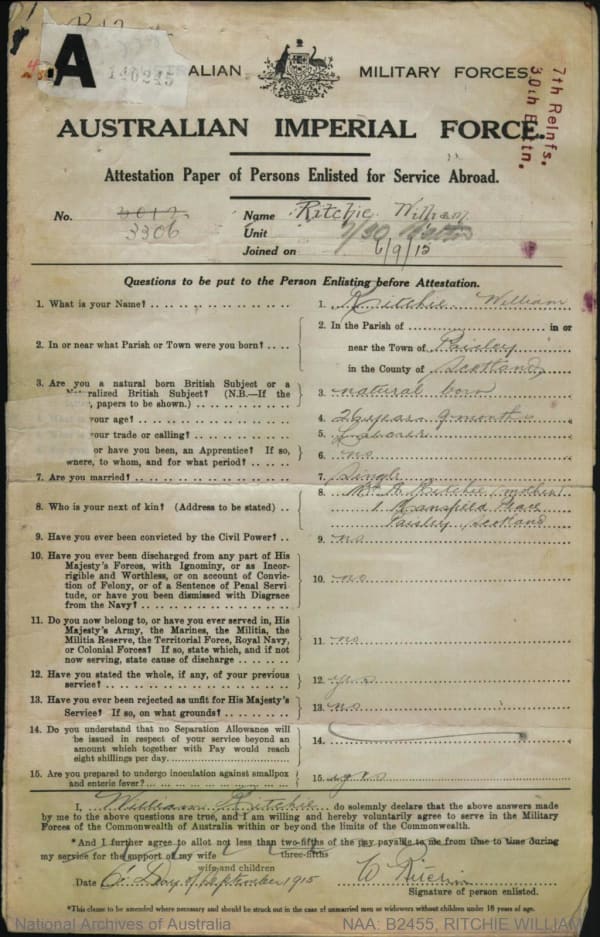 A
140245
ALIAN MILITARY FORCES.
7th Reinfs.
30th Battn.
AUSTRALIAN IMPERIAL FORCE.
Attestation Paper of Persons Enlisted for Service Abroad.
No. 3012 Name Ritchie William
3306 Unit 7/30 Battn
Joined on 6/9/15
Questions to be put to the Person Enlisting before Attestation.
1. What is your Name? 1. Ritchie William
2. In or near what Parish or Town were you born? 2. In the Parish of in or
near the Town of Paisley
in the County of Scotland
3. Are you a natural born British Subject or a
Naturalized British Subject? (N.B.—If the
papers to be shown.) 3. natural born
your age? 4. 26 years 9 months
your trade or calling? 5. Labourer
or have you been, an Apprentice? If so,
where, to whom, and for what period? 6. no
7. Are you married? 7. Single
8. Who is your next of kin? (Address to be stated) 8. Ritchie (mother)
1 Mansfield Place
Paisley Scotland
9. Have you ever been convicted by the Civil Power? 9. no
10. Have you ever been discharged from any part of His
Majesty's Forces, with Ignominy, or as Incor-
rigible and Worthless, or on account of Convic-
tion of Felony, or of a Sentence of Penal Servi-
tude, or have you been dismissed with Disgrace
from the Navy? 10. no
11. Do you now belong to, or have you ever served in, His
Majesty's Army, the Marines, the Militia, the
Militia Reserve, the Territorial Force, Royal Navy,
or Colonial Forces? If so, state which, and if not
now serving, state cause of discharge 11. no
12. Have you stated the whole, if any, of your previous
service? 12. yes
13. Have you ever been rejected as unfit for His Majesty's
Service? If so, on what grounds? 13. no
14. Do you understand that no Separation Allowance will
be issued in respect of your service beyond an
amount which together with Pay would reach
eight shillings per day. 14.
15. Are you prepared to undergo inoculation against smallpox
and enteric fever? 15. yes
I, William Ritchie do solemnly declare that the above answers made
by me to the above questions are true, and I am willing and hereby voluntarily agree to serve in the Military
Forces of the Commonwealth of Australia within or beyond the limits of the Commonwealth.
*And I further agree to allot not less than two-fifths of the pay payable to me from time to time during
three-fifths
my service for the support of my wife
wife and children
Date 6th Day of September 1915 W Ritchie
Signature of person enlisted.
*This clause to be amended where necessary and should be struck out in the case of unmarried men or widowers without children under 18 years of age.
National Archives of Australia NAA: B2455, RITCHIE WILLIAM